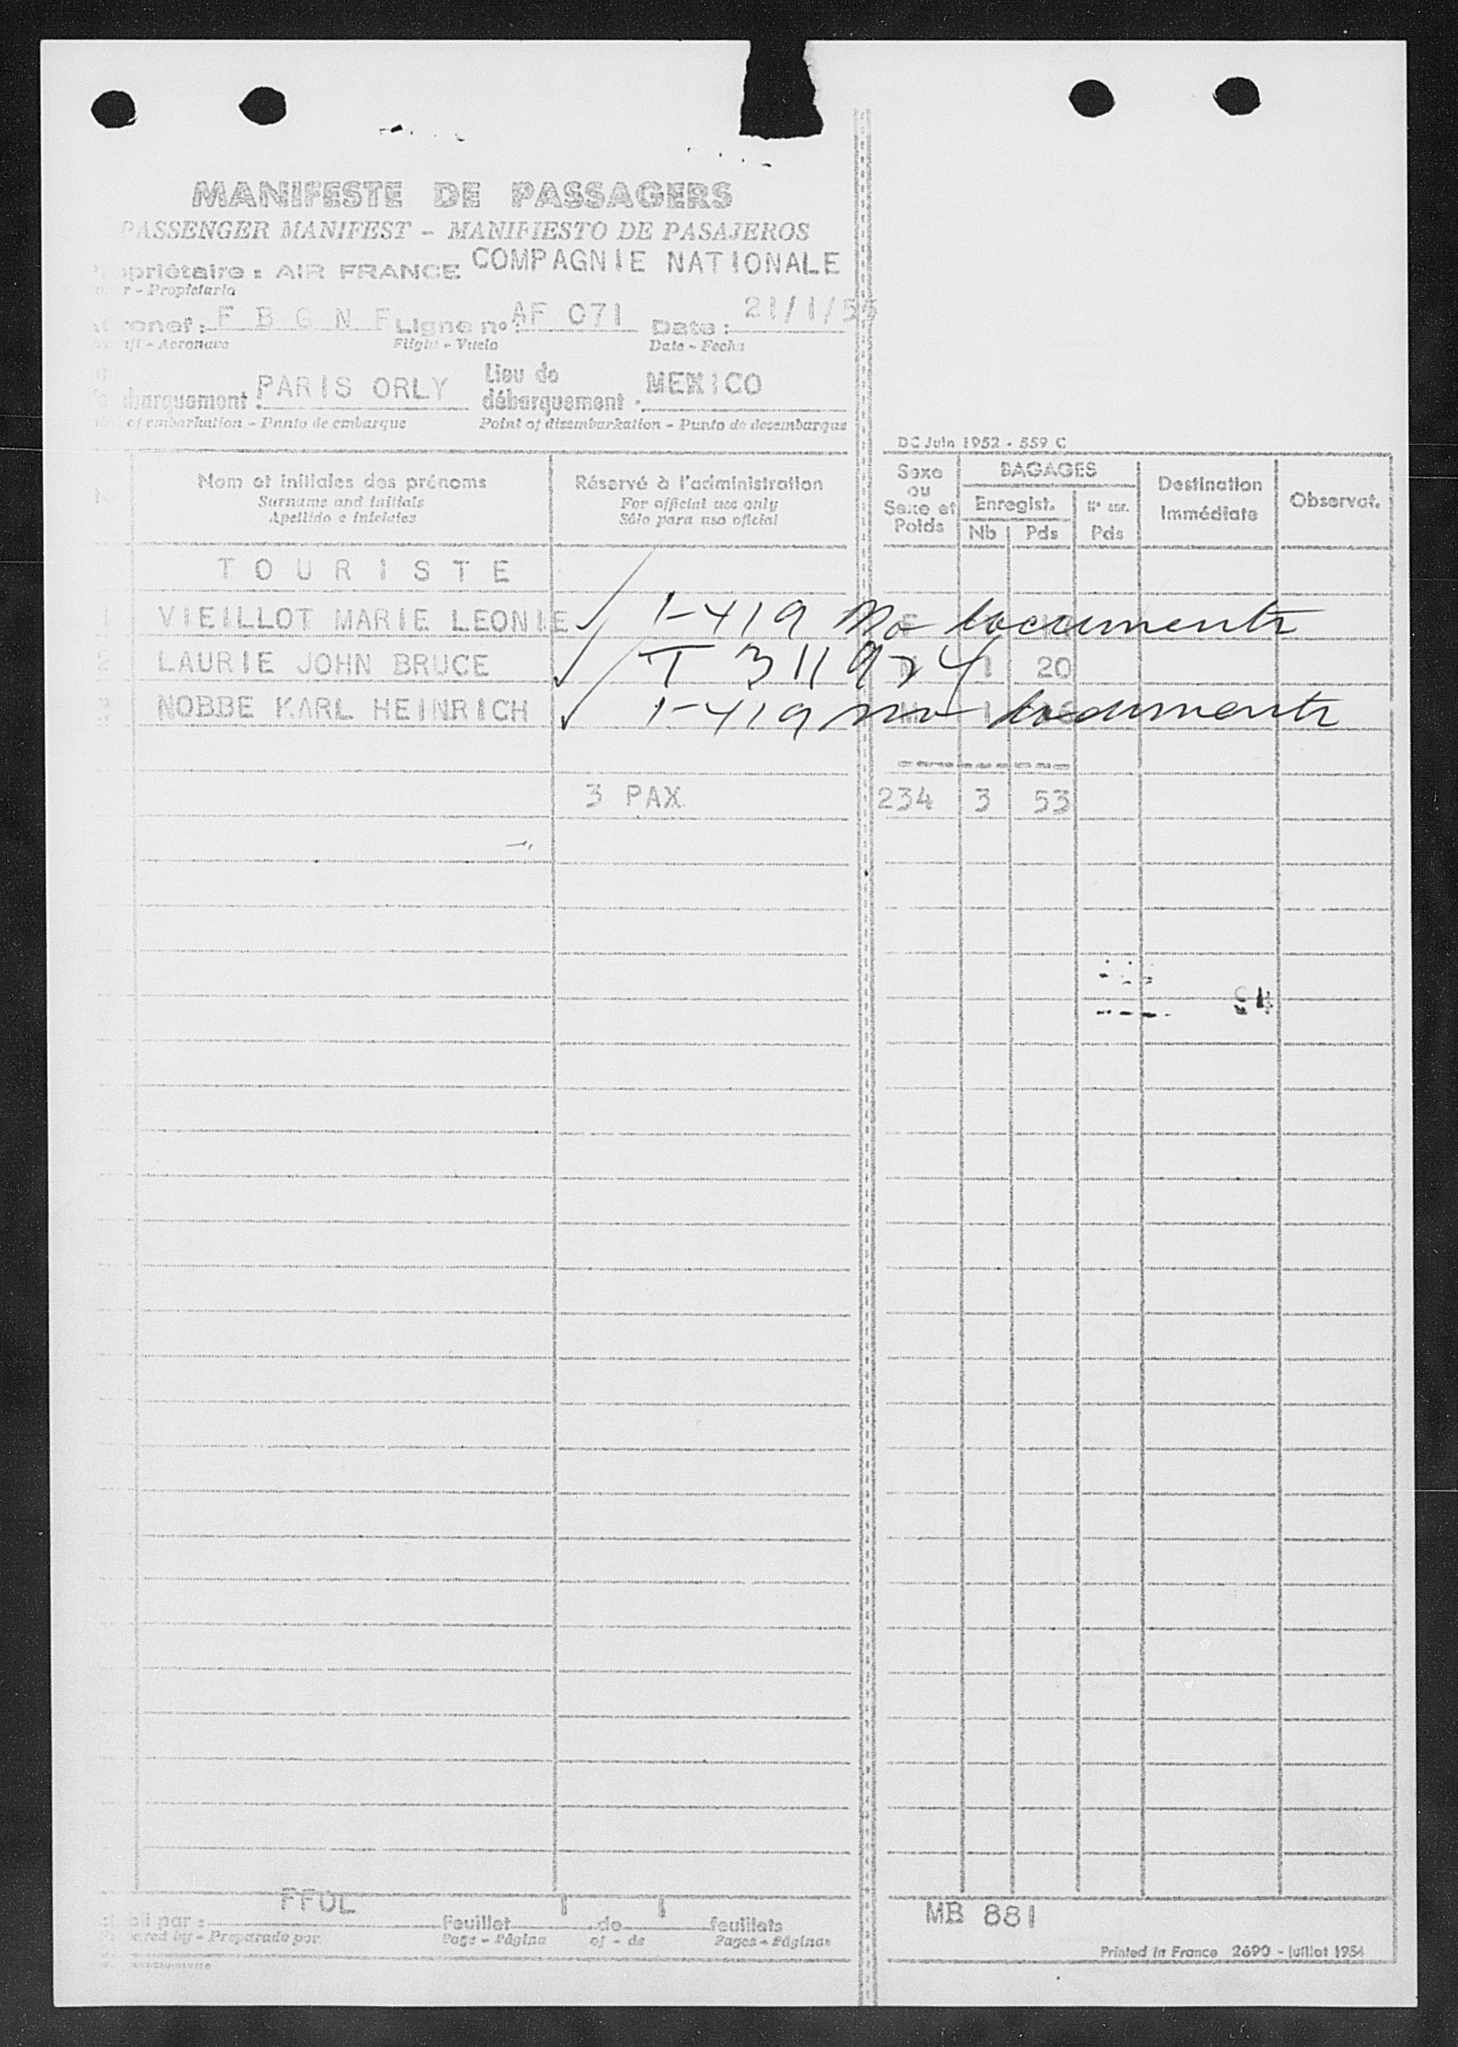 MANIFESTE DE PASSAGERS
PASSENGER MANIFEST - MANIFIESTO DE PASAJEROS
opriétaire : AIR FRANCE COMPAGNIE NATIONALE
r - Propietario
ronef : F B G N F Ligne no : AF 071 Date : 21/1/55
ft - Aeronave Flight - Vuelo Date - Fecha
barquement PARIS ORLY Lieu de débarquement . MEXICO
of embarkation - Punto de embarque Point of disembarkation - Punto de desembarque
DC Juin 1952 - 559 C
Nom et initiales des prénoms Réservé à l'administration Sexe ou Sexe et Poids BAGAGES Destination Immédiate Observat.
Surname and initials For official use only Enregist.
Apellido e iniciales Sólo para uso oficial Nb Pds Pds
T O U R I S T E
1 VIEILLOT MARIE LEONIE ✓ 1-419 No documents
2 LAURIE JOHN BRUCE ✓ T 311924 1 20
NOBBE KARL HEINRICH ✓ 1-419 no documents
3 PAX 234 3 53
FFUL 1 1 MB 881
par : Feuillet de feuillets
ared by - Preparado por Page - Página of - de Pages - Páginas
Printed in France 2690 - juillet 1954